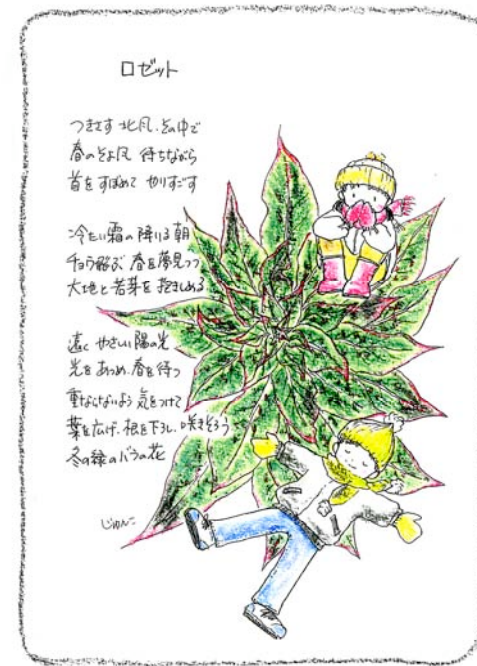 ロゼット
つきさす北風、その中で
春のそよ風 待ちながら
首をすぼめて やりすごす
冷たい霜の降りる朝
チョウ飛ぶ 春を夢見つつ
大地と若芽を抱きしめる
遠く やさしい陽の光
光をあつめ、春を待つ
重ならないよう 気をつけて
葉を広げ、根を下ろし、咲きそろう
冬の緑のバラの花
じゅんこ